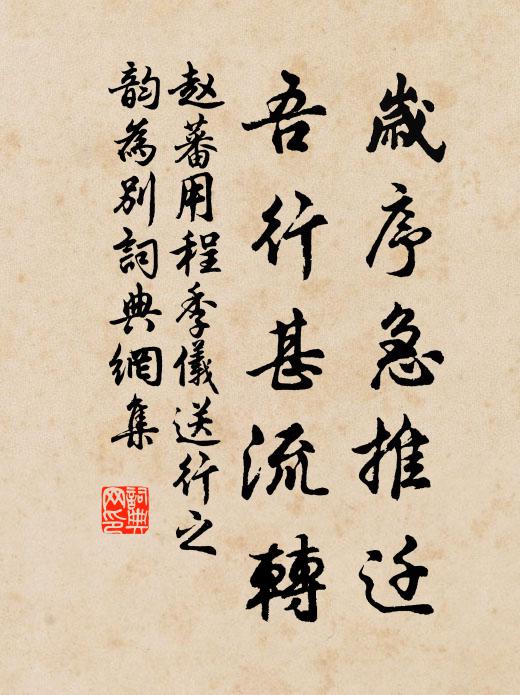 歲序急推迁
吾行甚流轉
赵蕃用程季儀送行之
韵為別詞典網集
詞典网印